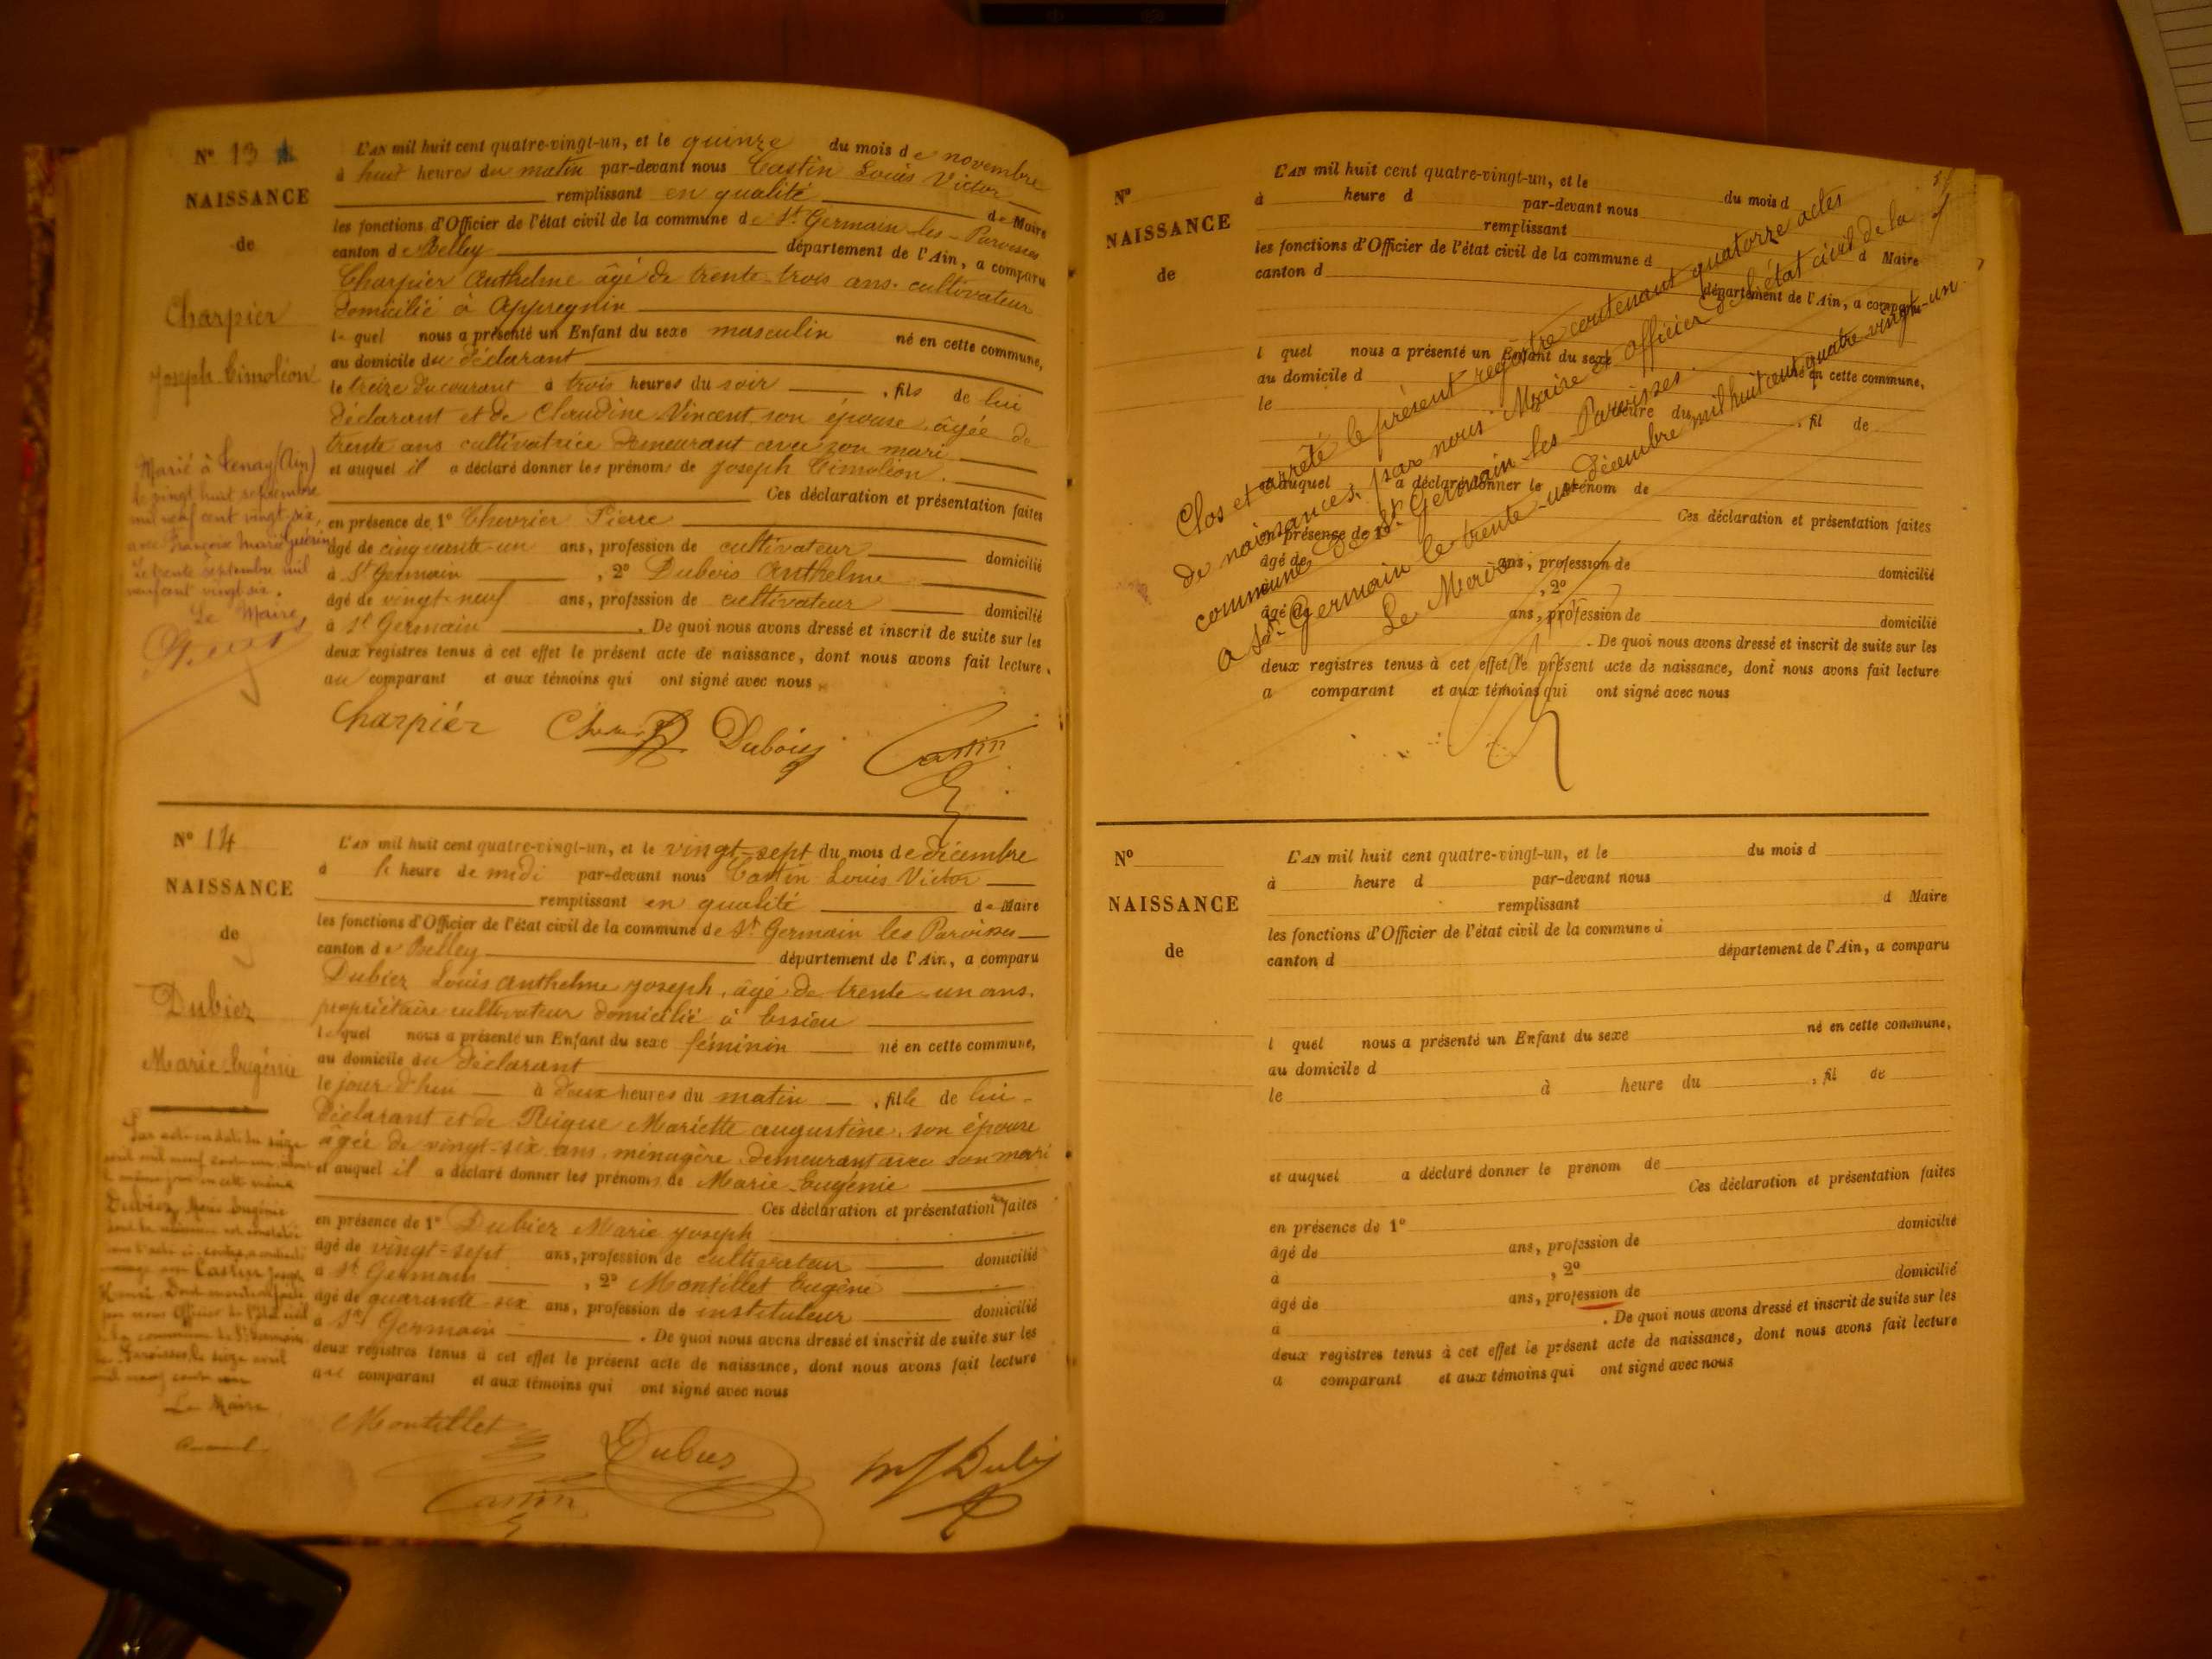 N° 13
NAISSANCE
de
Charpier
Joseph Cimoléon
Marié à Tenay (Ain)
le vingt huit septembre
mil neuf cent vingt six,
avec Françoise Marie Guérin
Le trente septembre mil
neuf cent vingt six.
Le Maire,
L'AN mil huit cent quatre-vingt-un, et le quinze du mois de novembre
à huit heures du matin par-devant nous Castin Louis Victor
remplissant en qualité de Maire
les fonctions d'Officier de l'état civil de la commune de St Germain-les-Paroisses
canton de Belley département de l'Ain, a comparu
Charpier Anthelme âgé de trente-trois ans. cultivateur
domicilié à Appregnin
lequel nous a présenté un Enfant du sexe masculin né en cette commune,
au domicile du déclarant
le treize du courant à trois heures du soir , fils de lui
déclarant et de Claudine Vincent, son épouse, âgée de
trente ans cultivatrice demeurant avec son mari
et auquel il a déclaré donner les prénoms de Joseph Cimoléon.
Ces déclaration et présentation faites
en présence de 1° Chevrier Pierre
âgé de cinquante-un ans, profession de cultivateur domicilié
à St Germain , 2° Dubois Anthelme
âgé de vingt-neuf ans, profession de cultivateur domicilié
à St Germain . De quoi nous avons dressé et inscrit de suite sur les
deux registres tenus à cet effet le présent acte de naissance, dont nous avons fait lecture
au comparant et aux témoins qui ont signé avec nous
Charpier Dubois Castin
N° 14
NAISSANCE
de
Dubiez
Marie-Eugénie
Par acte en date du seize
avril mil neuf cent un
Dubiez, Marie Eugénie
Castin Joseph
par nous Officier de l'état civil
de la commune de St Germain
les Paroisses, le seize avril
mil neuf cent un
Le Maire
L'AN mil huit cent quatre-vingt-un, et le vingt-sept du mois de décembre
à l' heure de midi par-devant nous Castin Louis Victor
remplissant en qualité de Maire
les fonctions d'Officier de l'état civil de la commune de St Germain les Paroisses
canton de Belley département de l'Ain, a comparu
Dubiez Louis Anthelme Joseph, âgé de trente-un ans.
propriétaire cultivateur domicilié à Essieu
lequel nous a présenté un Enfant du sexe féminin né en cette commune,
au domicile du déclarant
le jour d'hui à deux heures du matin , fille de lui
déclarant et de Mariette Augustine, son épouse
âgée de vingt-six ans, ménagère, demeurant avec son mari
et auquel il a déclaré donner les prénoms de Marie-Eugénie
Ces déclaration et présentation faites
en présence de 1° Dubiez Marie Joseph
âgé de vingt-sept ans, profession de cultivateur domicilié
à St Germain , 2° Montillet Eugène
âgé de quarante-six ans, profession de instituteur domicilié
à St Germain . De quoi nous avons dressé et inscrit de suite sur les
deux registres tenus à cet effet le présent acte de naissance, dont nous avons fait lecture
au comparant et aux témoins qui ont signé avec nous
Montillet Dubiez
Castin
N°
NAISSANCE
de
L'AN mil huit cent quatre-vingt-un, et le du mois d
à heure d par-devant nous
remplissant d Maire
les fonctions d'Officier de l'état civil de la commune d
canton d département de l'Ain, a comparu
l quel nous a présenté un Enfant du sexe né en cette commune,
au domicile d
le à heure du , fil de
et auquel a déclaré donner le prénom de
Ces déclaration et présentation faites
en présence de 1°
âgé de ans, profession de domicilié
à , 2°
âgé de ans, profession de domicilié
à . De quoi nous avons dressé et inscrit de suite sur les
deux registres tenus à cet effet le présent acte de naissance, dont nous avons fait lecture
a comparant et aux témoins qui ont signé avec nous
Clos et arrêté le présent registre contenant quatorze actes
de naissances, par nous Maire et officier de l'état civil de la
commune de St Germain les Paroisses.
a St Germain le trente-un décembre mil huit cent quatre vingt-un
Le Maire
N°
NAISSANCE
de
L'AN mil huit cent quatre-vingt-un, et le du mois d
à heure d par-devant nous
remplissant d Maire
les fonctions d'Officier de l'état civil de la commune d
canton d département de l'Ain, a comparu
l quel nous a présenté un Enfant du sexe né en cette commune,
au domicile d
le à heure du , fil de
et auquel a déclaré donner le prénom de
Ces déclaration et présentation faites
en présence de 1°
âgé de ans, profession de domicilié
à , 2°
âgé de ans, profession de domicilié
à . De quoi nous avons dressé et inscrit de suite sur les
deux registres tenus à cet effet le présent acte de naissance, dont nous avons fait lecture
a comparant et aux témoins qui ont signé avec nous